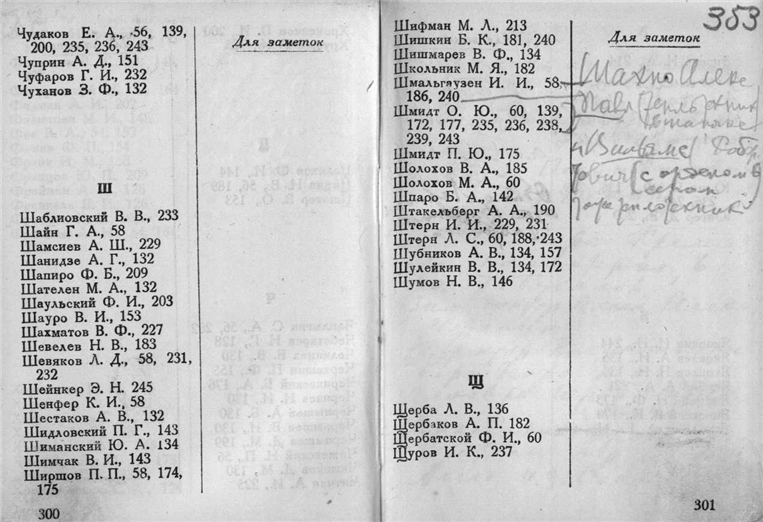 Чудаков Е. А., 56, 139,
200, 235, 236, 243
Чуприн А. Д., 151
Чуфаров Г. И., 232
Чуханов З. Ф., 132
Для заметок
Ш
Шаблиовский В. В., 233
Шайн Г. А., 58
Шамсиев А. Ш., 229
Шанидзе А. Г., 132
Шапиро Ф. Б., 209
Шателен М. А., 132
Шаульский Ф. И., 203
Шауро В. И., 153
Шахматов В. Ф., 227
Шевелев Н. В., 183
Шевяков Л. Д., 58, 231,
232
Шейнкер Э. Н. 245
Шенфер К. И., 58
Шестаков А. В., 132
Шидловский П. Г., 143
Шиманский Ю. А. 134
Шимчак В. И., 143
Ширшов П. П., 58, 174,
175
300
Шифман М. Л., 213
Шишкин Б. К., 181, 240
Шишмарев В. Ф., 134
Школьник М. Я., 182
Шмальгаузен И. И., 58,
186, 240
Шмидт О. Ю., 60, 139,
172, 177, 235, 236, 238,
239, 243
Шмидт П. Ю., 175
Шолохов В. А., 185
Шолохов М. А., 60
Шпаро Б. А., 142
Штакельберг А. А., 190
Штерн И. И., 229, 231
Штерн Л. С., 60, 188, 243
Шубников А. В., 134, 157
Шулейкин В. В., 134, 172
Шумов Н. В., 146
Щ
Щерба Л. В., 136
Щербаков А. П. 182
Щербатской Ф. И., 60
Щуров И. К., 237
353
Для заметок
301